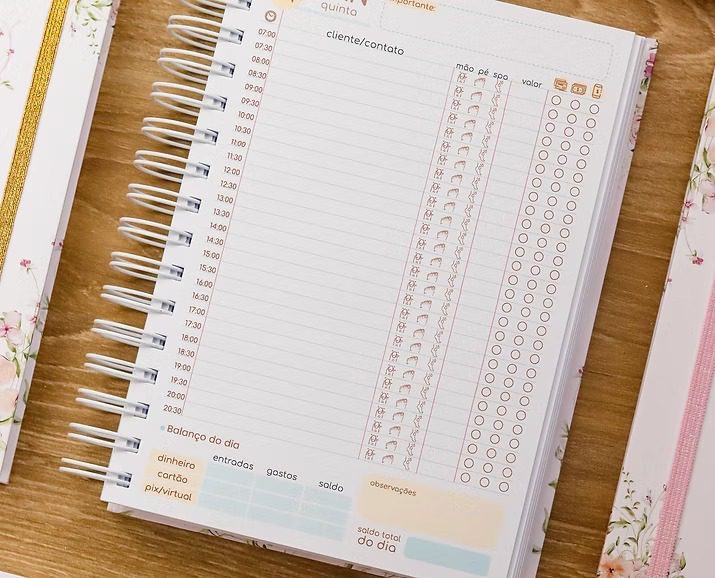 quinta
mportante:
cliente/contato
mão pé spa valor
07:00
07:30
08:00
08:30
09:00
09:30
10:00
10:30
11:00
11:30
12:00
12:30
13:00
13:30
14:00
14:30
15:00
15:30
16:00
16:30
17:00
17:30
18:00
18:30
19:00
19:30
20:00
20:30
Balanço do dia
entradas gastos saldo
dinheiro
cartão
pix/virtual
observações
saldo total
do dia